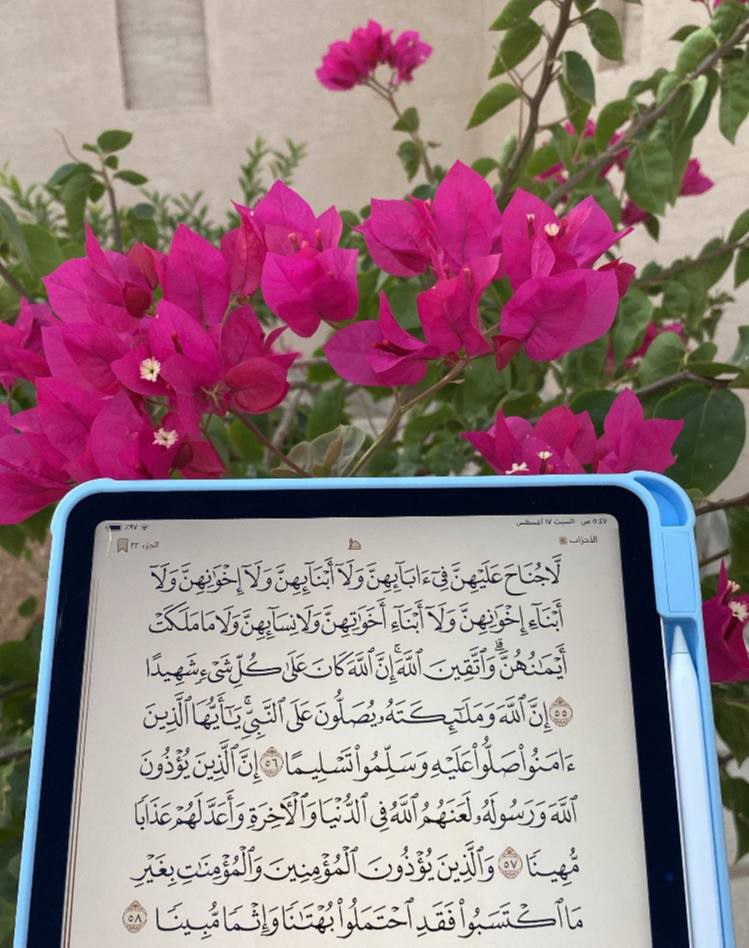 ٥:٤٧ ص السبت ١٧ أغسطس ٩٧٪
الأحزاب الجزء ٢٢
لَّا جُنَاحَ عَلَيْهِنَّ فِىٓ ءَابَآئِهِنَّ وَلَآ أَبْنَآئِهِنَّ وَلَآ إِخْوَٰنِهِنَّ وَلَآ
أَبْنَآءِ إِخْوَٰنِهِنَّ وَلَآ أَبْنَآءِ أَخَوَٰتِهِنَّ وَلَا نِسَآئِهِنَّ وَلَا مَا مَلَكَتْ
أَيْمَٰنُهُنَّۗ وَٱتَّقِينَ ٱللَّهَۚ إِنَّ ٱللَّهَ كَانَ عَلَىٰ كُلِّ شَىْءٍ شَهِيدًا
٥٥ إِنَّ ٱللَّهَ وَمَلَٰٓئِكَتَهُۥ يُصَلُّونَ عَلَى ٱلنَّبِىِّۚ يَٰٓأَيُّهَا ٱلَّذِينَ
ءَامَنُوا۟ صَلُّوا۟ عَلَيْهِ وَسَلِّمُوا۟ تَسْلِيمًا ٥٦ إِنَّ ٱلَّذِينَ يُؤْذُونَ
ٱللَّهَ وَرَسُولَهُۥ لَعَنَهُمُ ٱللَّهُ فِى ٱلدُّنْيَا وَٱلْءَاخِرَةِ وَأَعَدَّ لَهُمْ عَذَابًا
مُّهِينًا ٥٧ وَٱلَّذِينَ يُؤْذُونَ ٱلْمُؤْمِنِينَ وَٱلْمُؤْمِنَٰتِ بِغَيْرِ
مَا ٱكْتَسَبُوا۟ فَقَدِ ٱحْتَمَلُوا۟ بُهْتَٰنًا وَإِثْمًا مُّبِينًا ٥٨